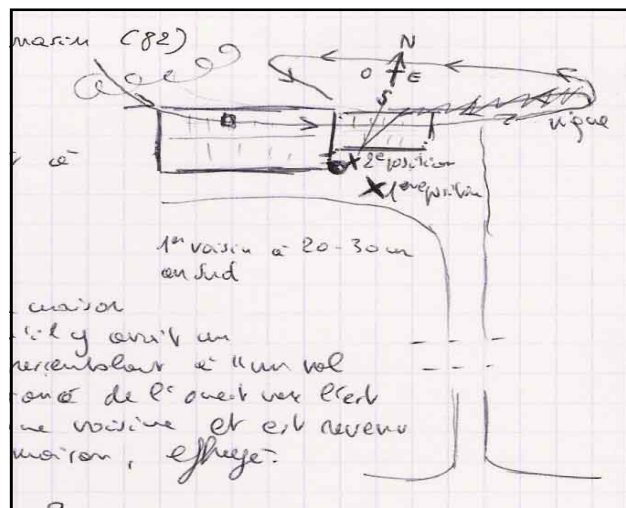 (82)
N
O E
S
vigne
à
2e position
1ere position
1er voisin à 20-30 m
au Sud
maison
il y avait un
à "un vol
de l'ouest vers l'est
voisine et est revenu
maison, effrayé.